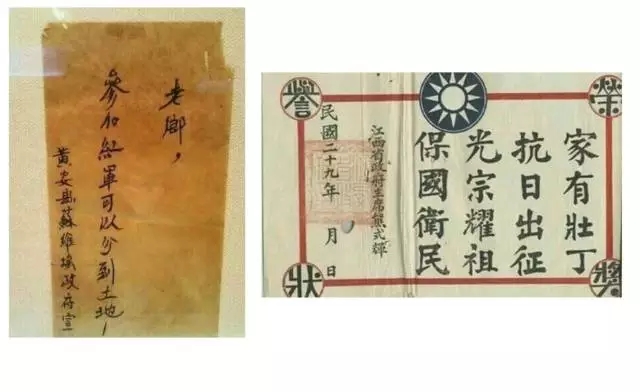 老鄉，
參加紅軍可以分到土地！
黃安县蘇維埃政府宣
榮譽
獎狀
家有壯丁
抗日出征
光宗耀祖
保國衛民
江西省政府主席熊式輝
民國二十九年 月 日